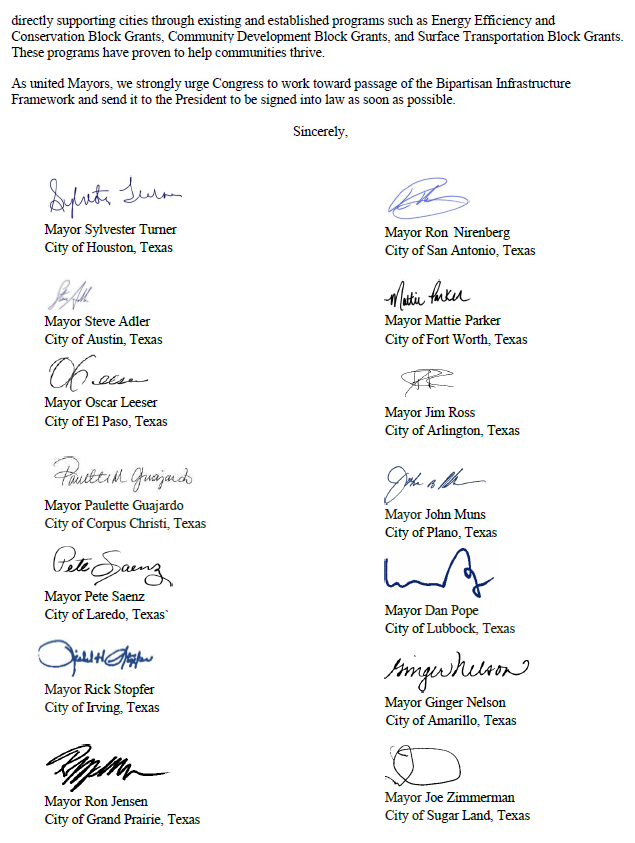 directly supporting cities through existing and established programs such as Energy Efficiency and
Conservation Block Grants, Community Development Block Grants, and Surface Transportation Block Grants.
These programs have proven to help communities thrive.
As united Mayors, we strongly urge Congress to work toward passage of the Bipartisan Infrastructure
Framework and send it to the President to be signed into law as soon as possible.
Sincerely,
Sylvester Turner
Mayor Sylvester Turner
City of Houston, Texas
Mayor Ron Nirenberg
City of San Antonio, Texas
Mayor Steve Adler
City of Austin, Texas
Mattie Parker
Mayor Mattie Parker
City of Fort Worth, Texas
O Leeser
Mayor Oscar Leeser
City of El Paso, Texas
Mayor Jim Ross
City of Arlington, Texas
Paulette M. Guajardo
Mayor Paulette Guajardo
City of Corpus Christi, Texas
Mayor John Muns
City of Plano, Texas
Pete Saenz
Mayor Pete Saenz
City of Laredo, Texas`
Mayor Dan Pope
City of Lubbock, Texas
Mayor Rick Stopfer
City of Irving, Texas
Ginger Nelson
Mayor Ginger Nelson
City of Amarillo, Texas
Mayor Ron Jensen
City of Grand Prairie, Texas
Mayor Joe Zimmerman
City of Sugar Land, Texas